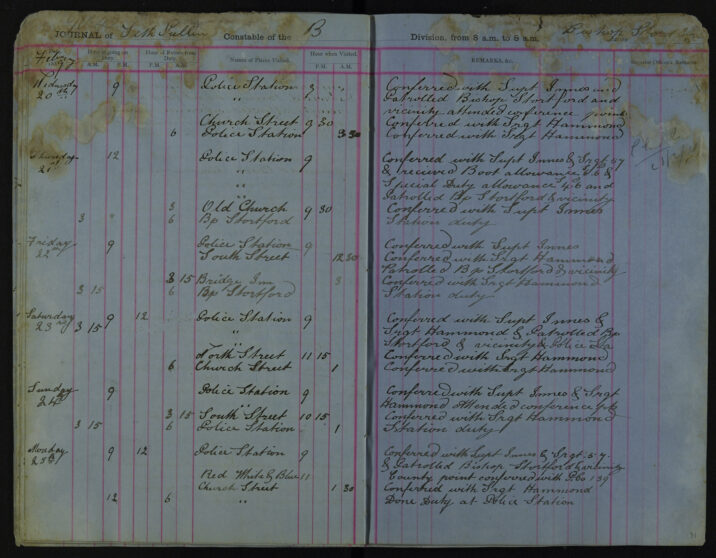 JOURNAL of Constable of the B Division, from 8 a.m. to 8 a.m. Bishop Stortford
Hour of going on Duty. Hour of Return from Duty. Names of Places Visited. Hour when Visited. REMARKS, &c. Superior Officer's Remarks
A.M. P.M. P.M. A.M. P.M. A.M.
Wednesday 9 Police Station 9 Conferred with Supt Innes and
20th " Patrolled Bishop Stortford and
vicinity attended conference point
Church Street 9 30 Conferred with Srgt Hammond
6 Police Station 3 30 Conferred with Srgt Hammond
Thursday 12 Police Station 9 Conferred with Supt Innes & Srgt 57
21st " & received Boot allowance &
" Special Duty allowance 4/6 and
" Patrolled Bp Stortford & vicinity
3 Old Church 9 30 Conferred with Supt Innes
3 " 6 Bp Stortford Station duty
Friday 9 Police Station 9 Conferred with Supt Innes
22nd South Street 12 30 Conferred with Srgt Hammond
Patrolled Bp Stortford & vicinity
3 15 Bridge Inn 3 Conferred with Srgt Hammond
3 15 6 Bp Stortford Station duty
Saturday 9 12 Police Station 9 Conferred with Supt Innes &
23rd 3 15 " Srgt Hammond & Patrolled Bp
" Stortford & vicinity & Police
North Street 11 15 Conferred with Srgt Hammond
6 Church Street 1 Conferred with Srgt Hammond
Sunday 9 Police Station 9 Conferred with Supt Innes & Srgt
24th " Hammond Attended conference
3 15 South Street 10 15 Conferred with Srgt Hammond
3 15 6 Police Station 1 Station duty
Monday 9 12 Police Station 9 Conferred with Supt Innes & Srgt 57
25th & Patrolled Bishop Stortford
Red White & Blue 11 County point conferred with 139
Church Street 1 30 Conferred with Srgt Hammond
12 6 " Done Duty at Police Station